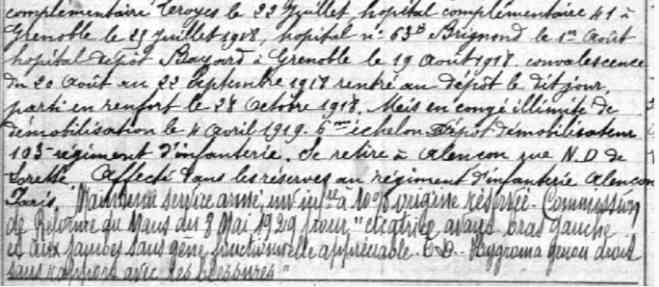 complémentaire Troyes le 22 Juillet, hopital complémentaire 41 à
Grenoble le 25 juillet 1918, hopital n° 63 Brignoud le 1er Août
hôpital dépôt Bayard à Grenoble le 19 Août 1918 convalescence
du 20 Août au 22 Septembre 1918 rentré au dépôt le dit jour,
parti en renfort le 28 Octobre 1918. Mis en congé illimité de
démobilisation le 4 Avril 1919. 6me échelon Dépôt démobilisateur
103e régiment d'infanterie. Se retire à Alençon rue N.D de
Lorette. Affecté dans les réserves au régiment d'infanterie Alençon
Paris. Maintenu service armé, à 10% origine
de Réforme du Mans du 8 Mai 1929 pour "cicatrice avant bras gauche
et aux jambes sans gêne fonctionnelle appréciable. Hygroma genou droit
sans rapport avec les blessures"